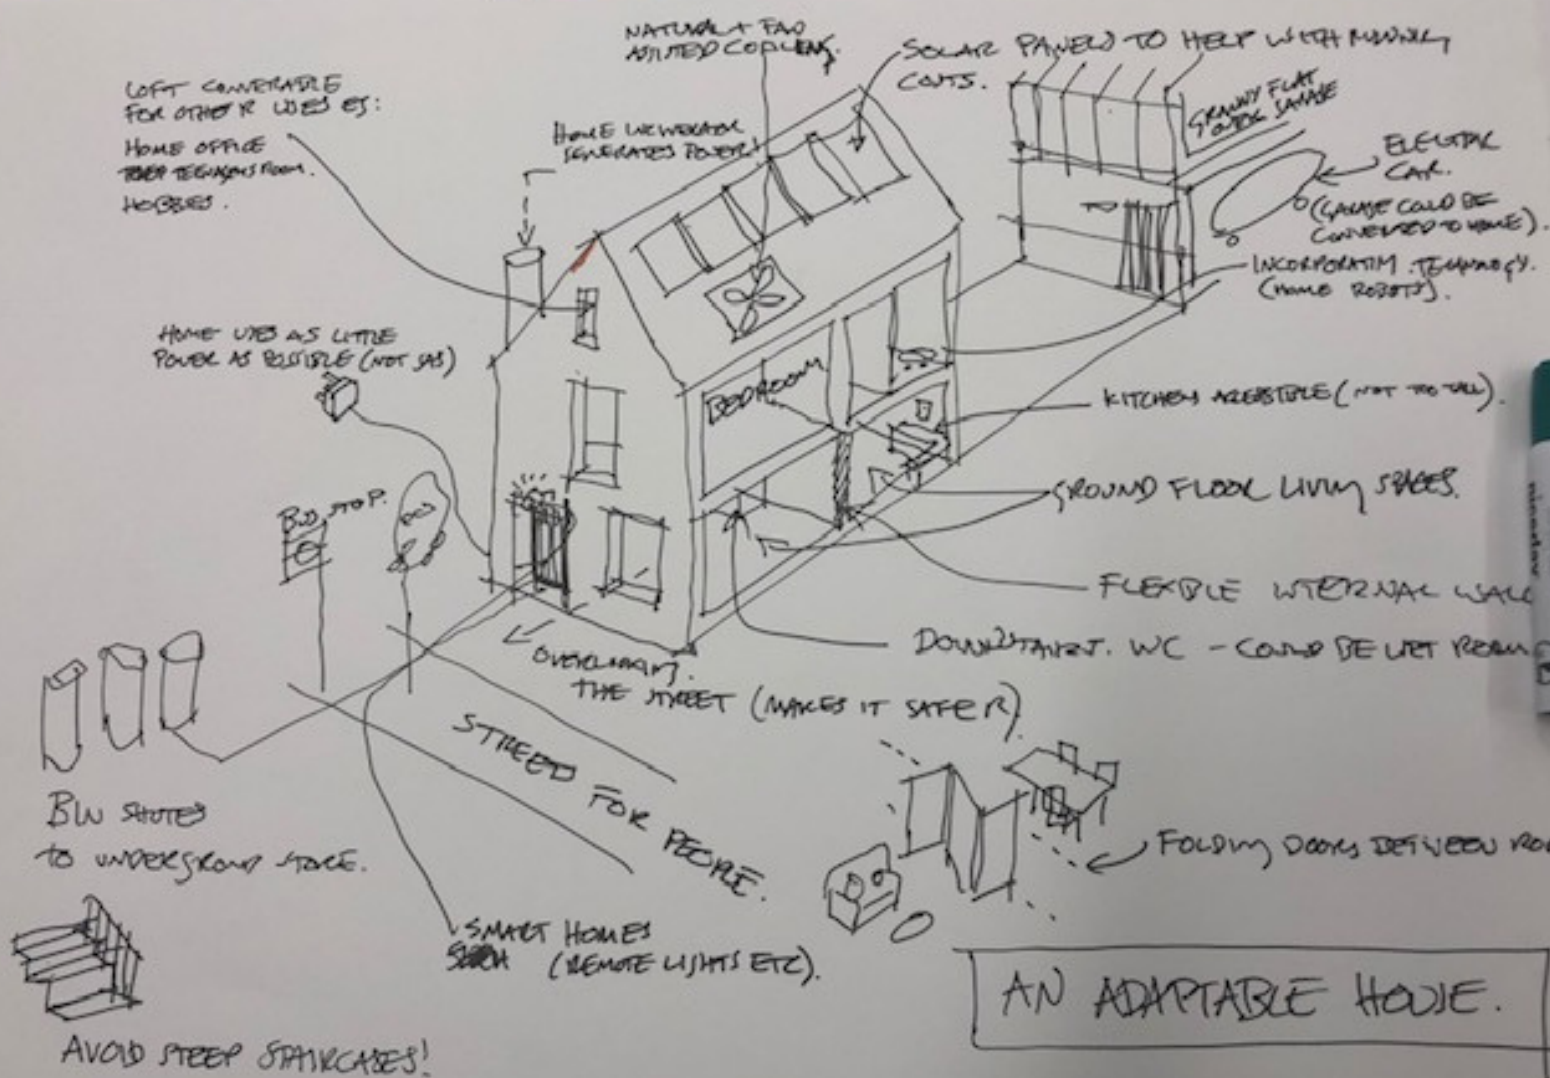 NATURAL + FAN
ASSISTED COOLING.
SOLAR PANELS TO HELP WITH RUNNING
COSTS.
LOFT CONVERTABLE
FOR OTHER USES EG:
HOME OFFICE
TEENAGERS ROOM.
HOBBIES.
HOME INCINERATOR
GENERATES POWER!
GRANNY FLAT
OVER GARAGE
ELECTRIC
CAR.
(GARAGE COULD BE
CONVERTED TO HOME).
INCORPORATING TECHNOLOGY.
(HOME ROBOTS).
HOME USES AS LITTLE
POWER AS POSSIBLE (NOT GAS)
BEDROOM
KITCHEN ACCESSIBLE (NOT TOO TALL).
BUS STOP.
GROUND FLOOR LIVING SPACES.
FLEXIBLE INTERNAL WALL
DOWNSTAIRS. WC - COULD BE WET ROOM
OVERLOOKING.
THE STREET (MAKES IT SAFER)
STREETS FOR PEOPLE.
BIN SHUTES
TO UNDERGROUND STORE.
FOLDING DOORS BETWEEN
SMART HOMES
(REMOTE LIGHTS ETC).
AN ADAPTABLE HOUSE.
AVOID STEEP STAIRCASES!